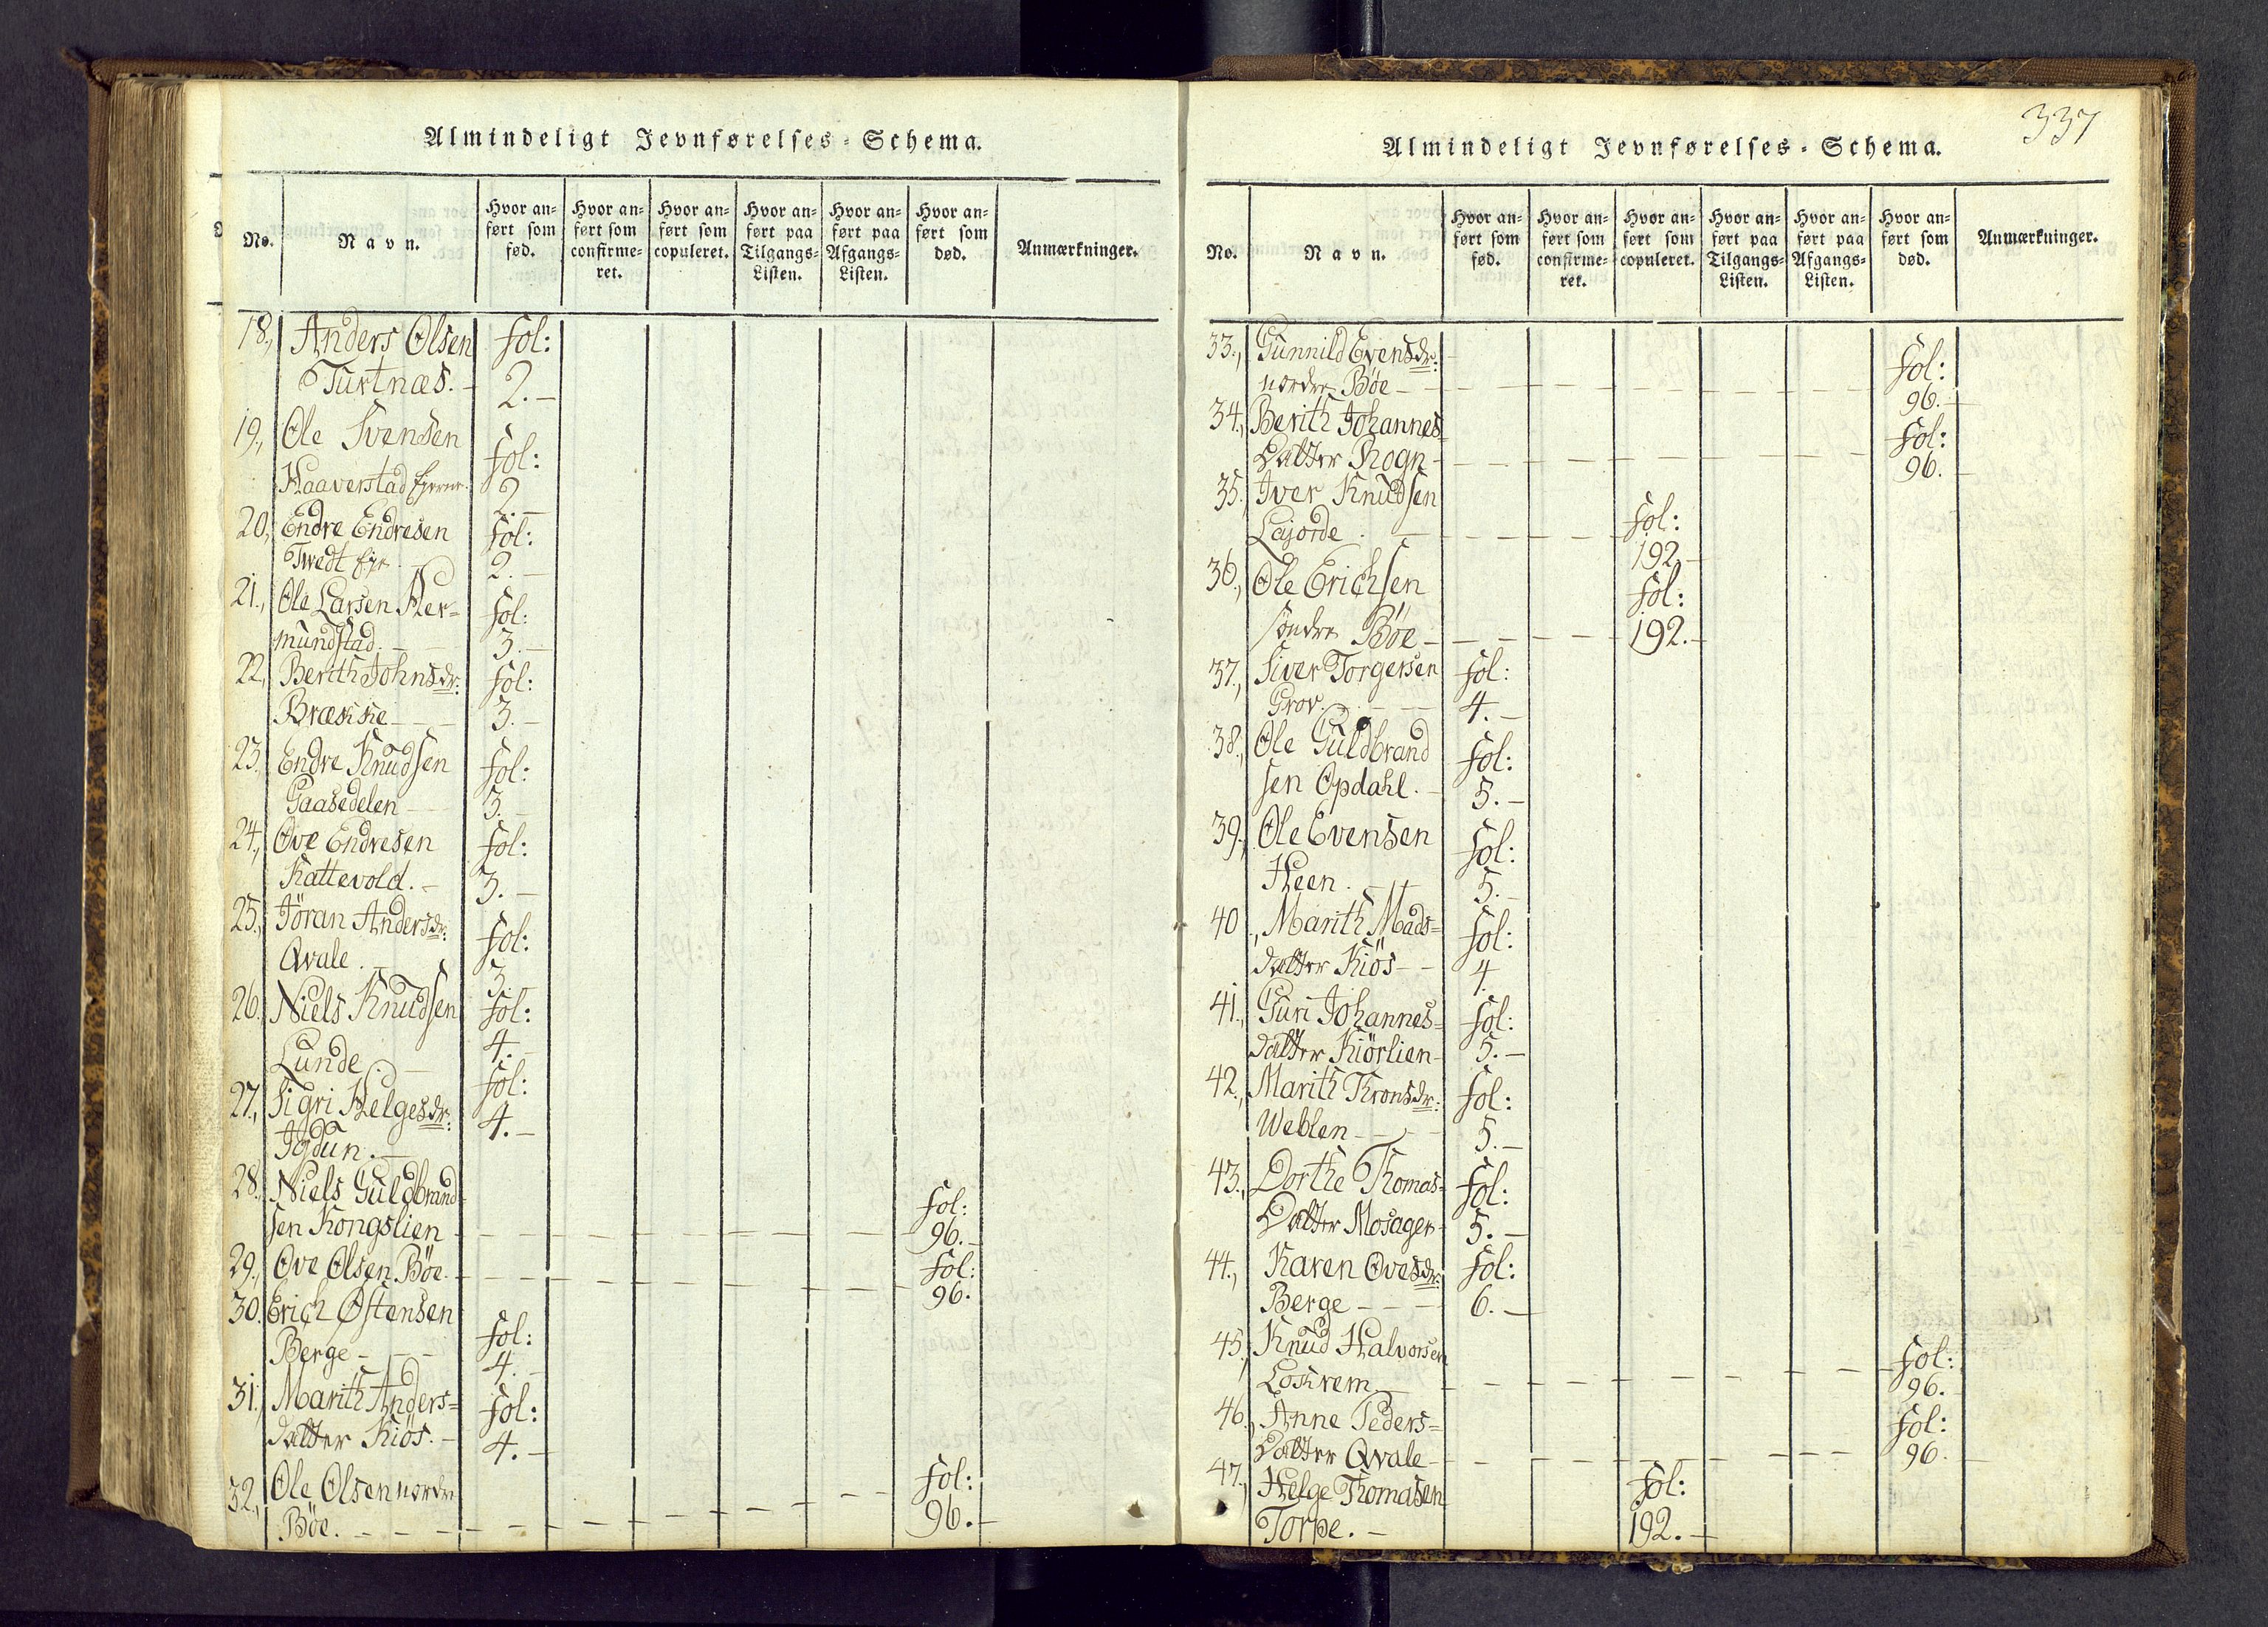 Almindeligt Jevnførelses-Schema.
No.
Navn.
Hvor an-
ført som
fød.
Hvor an-
ført som
confirme-
ret.
Hvor an-
ført som
copuleret.
Hvor an-
ført paa
Tilgangs-
Listen.
Hvor an-
ført paa
Afgangs-
Listen.
Hvor an-
ført som
død.
Anmærkninger.
18, Anders Olsen fol:
Turtnæs. 2.
19, Ole Svensen fol:
Haaverstad 2.
20, Endre Endresen fol:
Twedt 2.
21, Ole Larsen Her= fol:
mundstad. 3.
22, Berith Johnsdr: fol:
Brække 3.
23. Endre Knudsen fol:
Gaasedelen 3.
24, Ove Endresen fol:
Kattevold. 3.
25, Jöran Andersdr: fol:
Qvale. 3.
26. Niels Knudsen fol:
Lunde 4.
27, Sigri Helgesdr: fol:
Igdun. 4.
28. Niels Guldbrand fol:
sen Kongslien 96.
29, Ove Olsen Böe fol:
96.
30. Erich Østensen fol:
Berge 4.
31. Marith Anders= fol:
datter Kiös. 4.
32, Ole Olsen nordre fol:
Böe. 96.
337
Almindeligt Jevnførelses-Schema.
No.
Navn.
Hvor an-
ført som
fød.
Hvor an-
ført som
confirme-
ret.
Hvor an-
ført som
copuleret.
Hvor an-
ført paa
Tilgangs-
Listen.
Hvor an-
ført paa
Afgangs-
Listen.
Hvor an-
ført som
død.
Anmærkninger.
33, Gunnild Evensdr: fol:
nordre Böe 96.
34, Berith Johannes fol:
Datter Rogn 96.
35. Iver Knudsen fol:
Lajorde 192
36, Ole Erichsen fol:
söndre Böe 192.
37, Siver Torgersen fol:
Grov. 4.
38, Ole Guldbrand fol:
sen Opdahl. 5.
39, Ole Evensen fol:
Heen. 5.
40, Marith Mads= fol:
datter Kiös 4.
41, Guri Johannes= fol:
datter Kiörlien 5.
42, Marith Thronsdr: fol:
Weblen 5.
43, Dorthe Thomas= fol:
Datter Mosager 5.
44, Karen Ovesdr: fol:
Berge 6.
45, Knud Halvorsen fol:
Lokrem 96.
46, Anne Peders= fol:
Datter Qvale 96.
47, Helge Thomasen fol:
Torpe. 192.